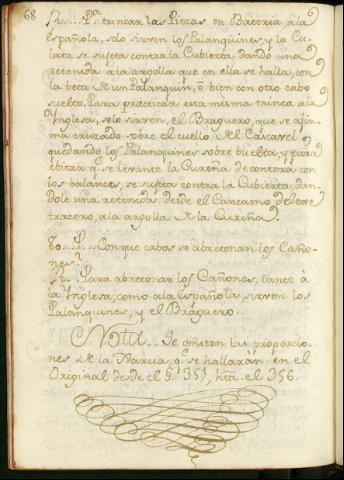 68
R... Pª trincan las Piezas en Bateria a la
Española, solo sirven los Palanquines, y la Cu
lata se sujeta contra la Cubierta, dando una
retenida a la argolla que en ella se halla, con
la beta de un Palanquin, ò bien con otro cabo
suelto. Para practicar esta misma trinca a la
Ynglesa, solo sirven, el Braguero, que se afir
ma cruzado sobre el cuello del Cascavel
quedando los Palanquines sobre buelta, y para
ebitar q. se levante la Cureña de contera con
los balances, se sujeta contra la Cubierta, dan-
dole una retenida desde el Cancamo del
trasero, a la argolla de la Cureña.
80.. P... Con que cabos se abretonan los Caño-
nes?
R... Para abretonar los Cañones, tanto à
la Ynglesa, como a la Española, sirven los
Palanquines, y el Braguero.
Nota.. Se omiten las proporcio-
nes de la q. se hallaràn en el
Original desde el §. 351, hta. el 356.